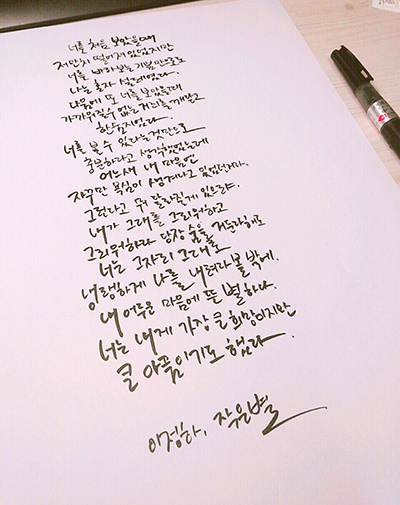 너를 처음 보았을때
저만치 떨어져 있었지만
너를 바라보는 기쁨만으로도
나는 혼자 설레였다.
다음에 또 너를 보았을때
가까워질수 없는 거리를 깨닫고
한숨지었다.
너를 볼 수 있다는것만으로
충분하다고 생각했었는데
어느새 내 마음엔
자꾸만 욕심이 생겨나고 있었던거다.
그런다고 뭐 달라질게 있으랴.
내가 그대를 그리워하고
그리워하다 당장 숨을 거둔다해도
너는 그자리 그대로
냉랭하게 나를 내려다볼 밖에.
내 어두운 마음에 뜬 별하나.
너는 내게 가장 큰 희망이지만
큰 아픔이기도 했다.
이정하, 작은별